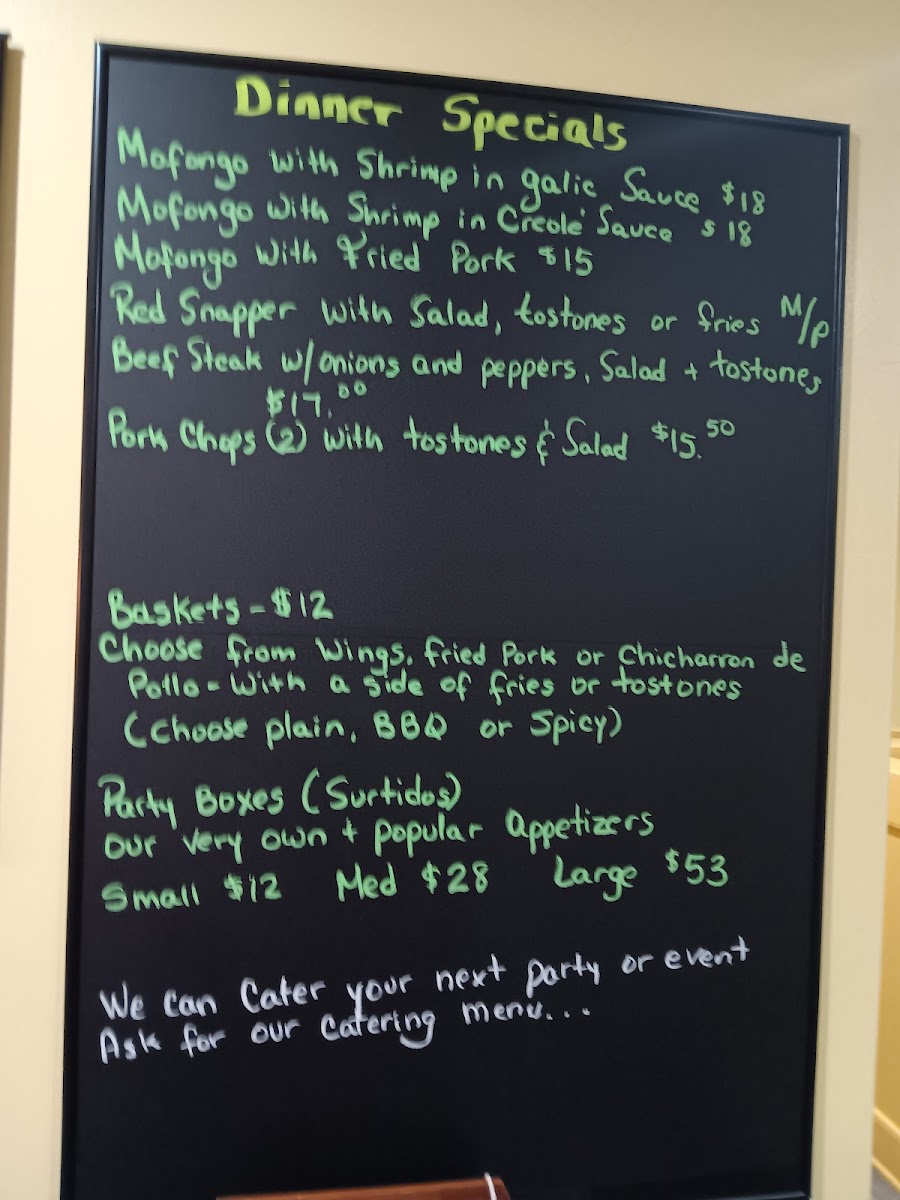 Dinner Specials
Mofongo with Shrimp in galic Sauce $18
Mofongo with Shrimp in Creole Sauce $18
Mofongo With Fried Pork $15
Red Snapper with Salad, tostones or fries M/P
Beef Steak w/onions and peppers, Salad + tostones
$17.00
Pork Chops (2) with tostones & Salad $15.50
Baskets - $12
Choose from Wings, fried Pork or Chicharron de
Pollo - With a side of fries or tostones
(Choose plain, BBQ or Spicy)
Party Boxes (Surtidos)
our very own + popular Appetizers
Small $12 Med $28 Large $53
We can Cater your next party or event
Ask for our catering menu...